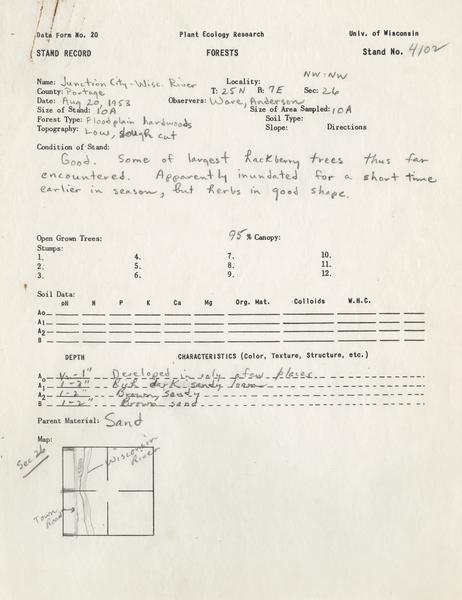 Data Form No. 20 Plant Ecology Research Univ. of Wisconsin
STAND RECORD FORESTS Stand No. 4102
Name: Junction City - Wisc. River Locality: NW: NW
County: Portage T: 25N R: 7E Sec: 26
Date: Aug 20, 1953 Observers: Ware, Anderson
Size of Stand: 10A Size of Area Sampled: 10A
Forest Type: Floodplain hardwoods Soil Type:
Topography: Low, slough cut Slope: Directions
Condition of Stand:
Good. Some of largest hackberry trees thus far
encountered. Apparently inundated for a short time
earlier in season, but herbs in good shape.
Open Grown Trees: 95 % Canopy:
Stumps:
1. 4. 7. 10.
2. 5. 8. 11.
3. 6. 9. 12.
Soil Data:
pH N P K Ca Mg Org. Mat. Colloids W.H.C.
Ao
A1
A2
B
DEPTH CHARACTERISTICS (Color, Texture, Structure, etc.)
Ao ½-1" Developed in only a few places
A1 1-3" dark sandy loam
A2 1-2" Brown, sandy
B Brown sand
Parent Material: Sand
Map:
Sec 26
Wisconsin River
Town Road